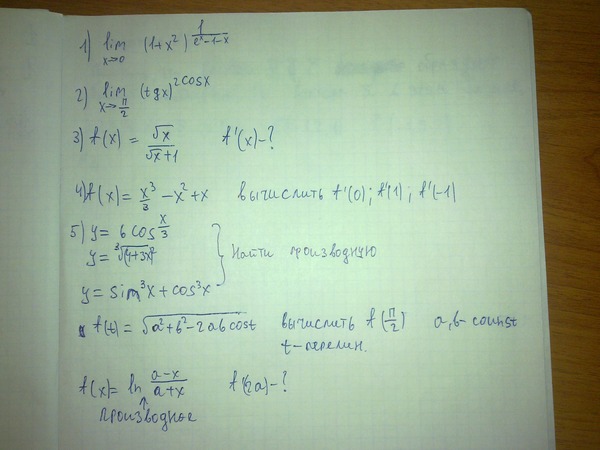 1) lim x→0 (1+x²)^(1/(eˣ-1-x))
2) lim x→π/2 (tgx)^(2cosx)
3) f(x) = √x/(√x+1) f'(x)-?
4) f(x) = x³/3 - x² + x вычислить f'(0); f'(1); f'(-1)
5) y = 6 cos x/3
y = ∛(4+3x)²
Найти производную
y = sin³x + cos³x
f(t) = √(a²+b²-2ab cost) вычислить f(π/2) a,b- counst
t-перемен.
f(x) = ln (a-x)/(a+x) f'(2a)-?
↑
производное